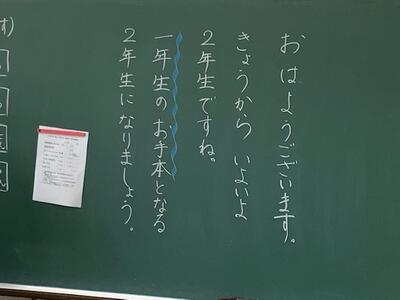 おはようございます。
きょうから いよいよ
２年生ですね。
一年生のお手本となる
２年生になりましょう。